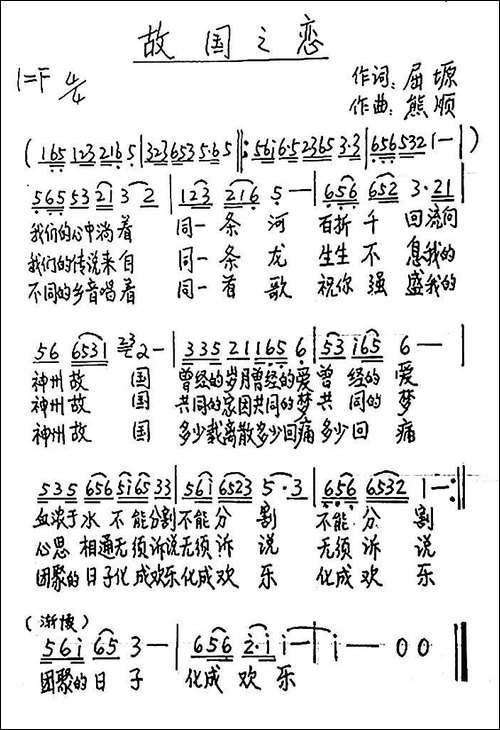 故国之恋
1=F 4/4
作词：屈塬
作曲：熊顺
(165 123 2165|323 653 5·65‖:56i 6·5 2365 3·3|656532 1—|)
5653 53 21 3 2|123 216 5—|656 652 3·21|
我们的心中淌着 同一条河 百折千回流向
我们的传说来自 同一条龙 生生不息我的
不同的乡音唱着 同一首歌 祝你强盛我的
56 6531 23 2—|335 21 165 6|53 i65 6—|
神州故国 曾经的岁月曾经的爱曾经的爱
神州故国 共同的家园共同的梦共同的梦
神州故国 多少载离散多少回痛多少回痛
535 656 5165 33|56i 6523 5·3|656 6532 1—:‖
血浓于水不能分割不能分割 不能分割
心思相通无须诉说无须诉说 无须诉说
团聚的日子化成欢乐化成欢乐 化成欢乐
(渐慢)
56i 65 3—|656 2·i i—|i—00‖
团聚的日子 化成欢乐